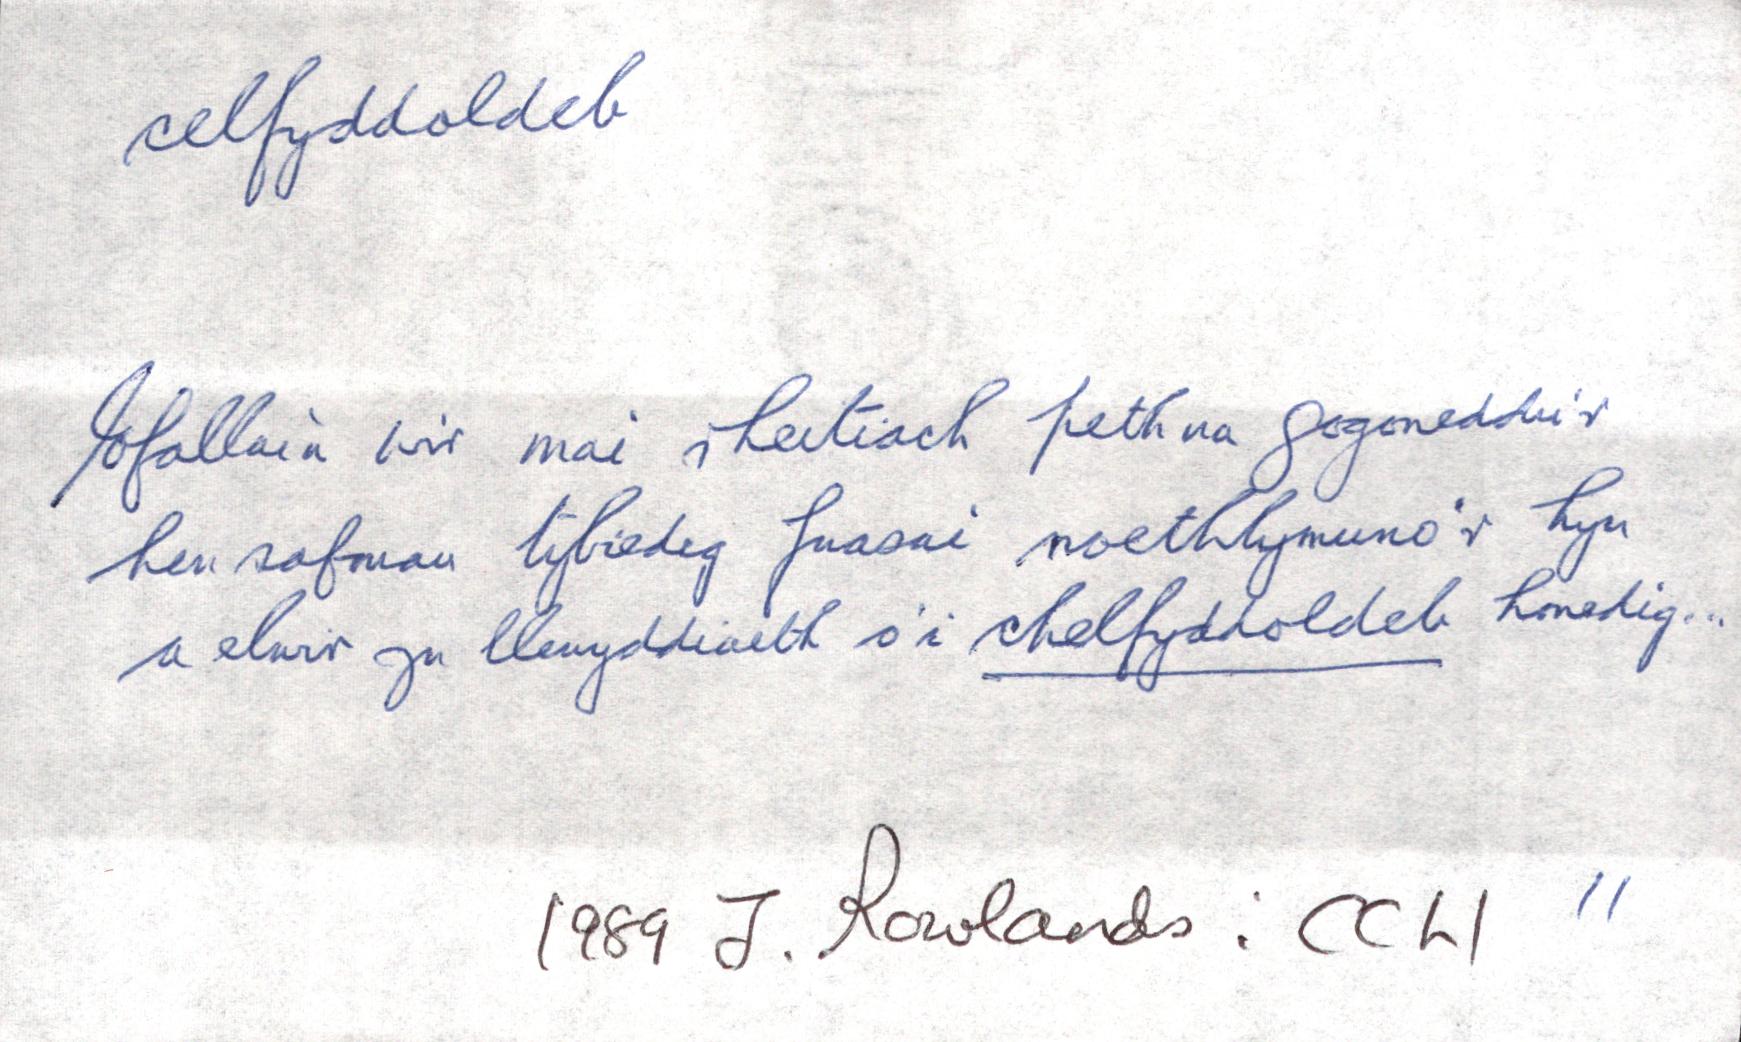 celfyddoldeb
Efallai'n wir mai rheitiach peth na gogoneddu'r
hen safonau tybiedig fuasai noethlymuno'r hyn
a elwir yn llenyddiaeth o'i chelfyddoldeb honedig...
1989 J. Rowlands : CCLl 11